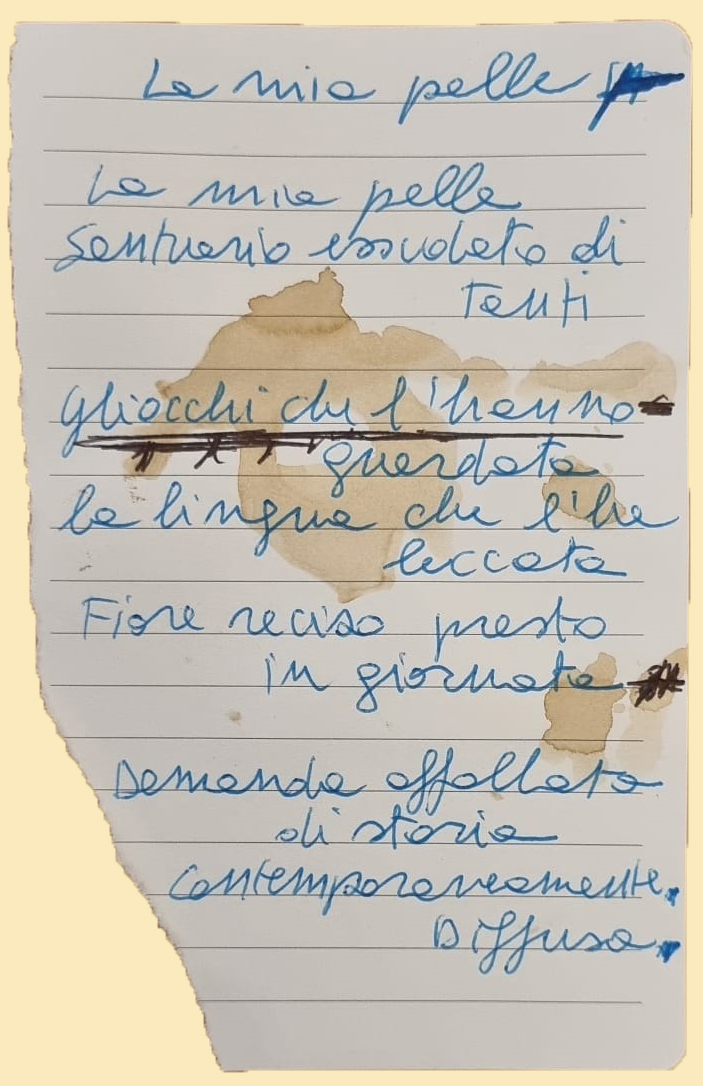 La mia pelle
La mia pelle
Santuario essudato di
tanti
gli occhi che l'hanno
guardata
la lingua che l'ha
leccata
Fiore reciso presto
in giornata
Demanda affollata
di storia
contemporaneamente.
Diffusa.